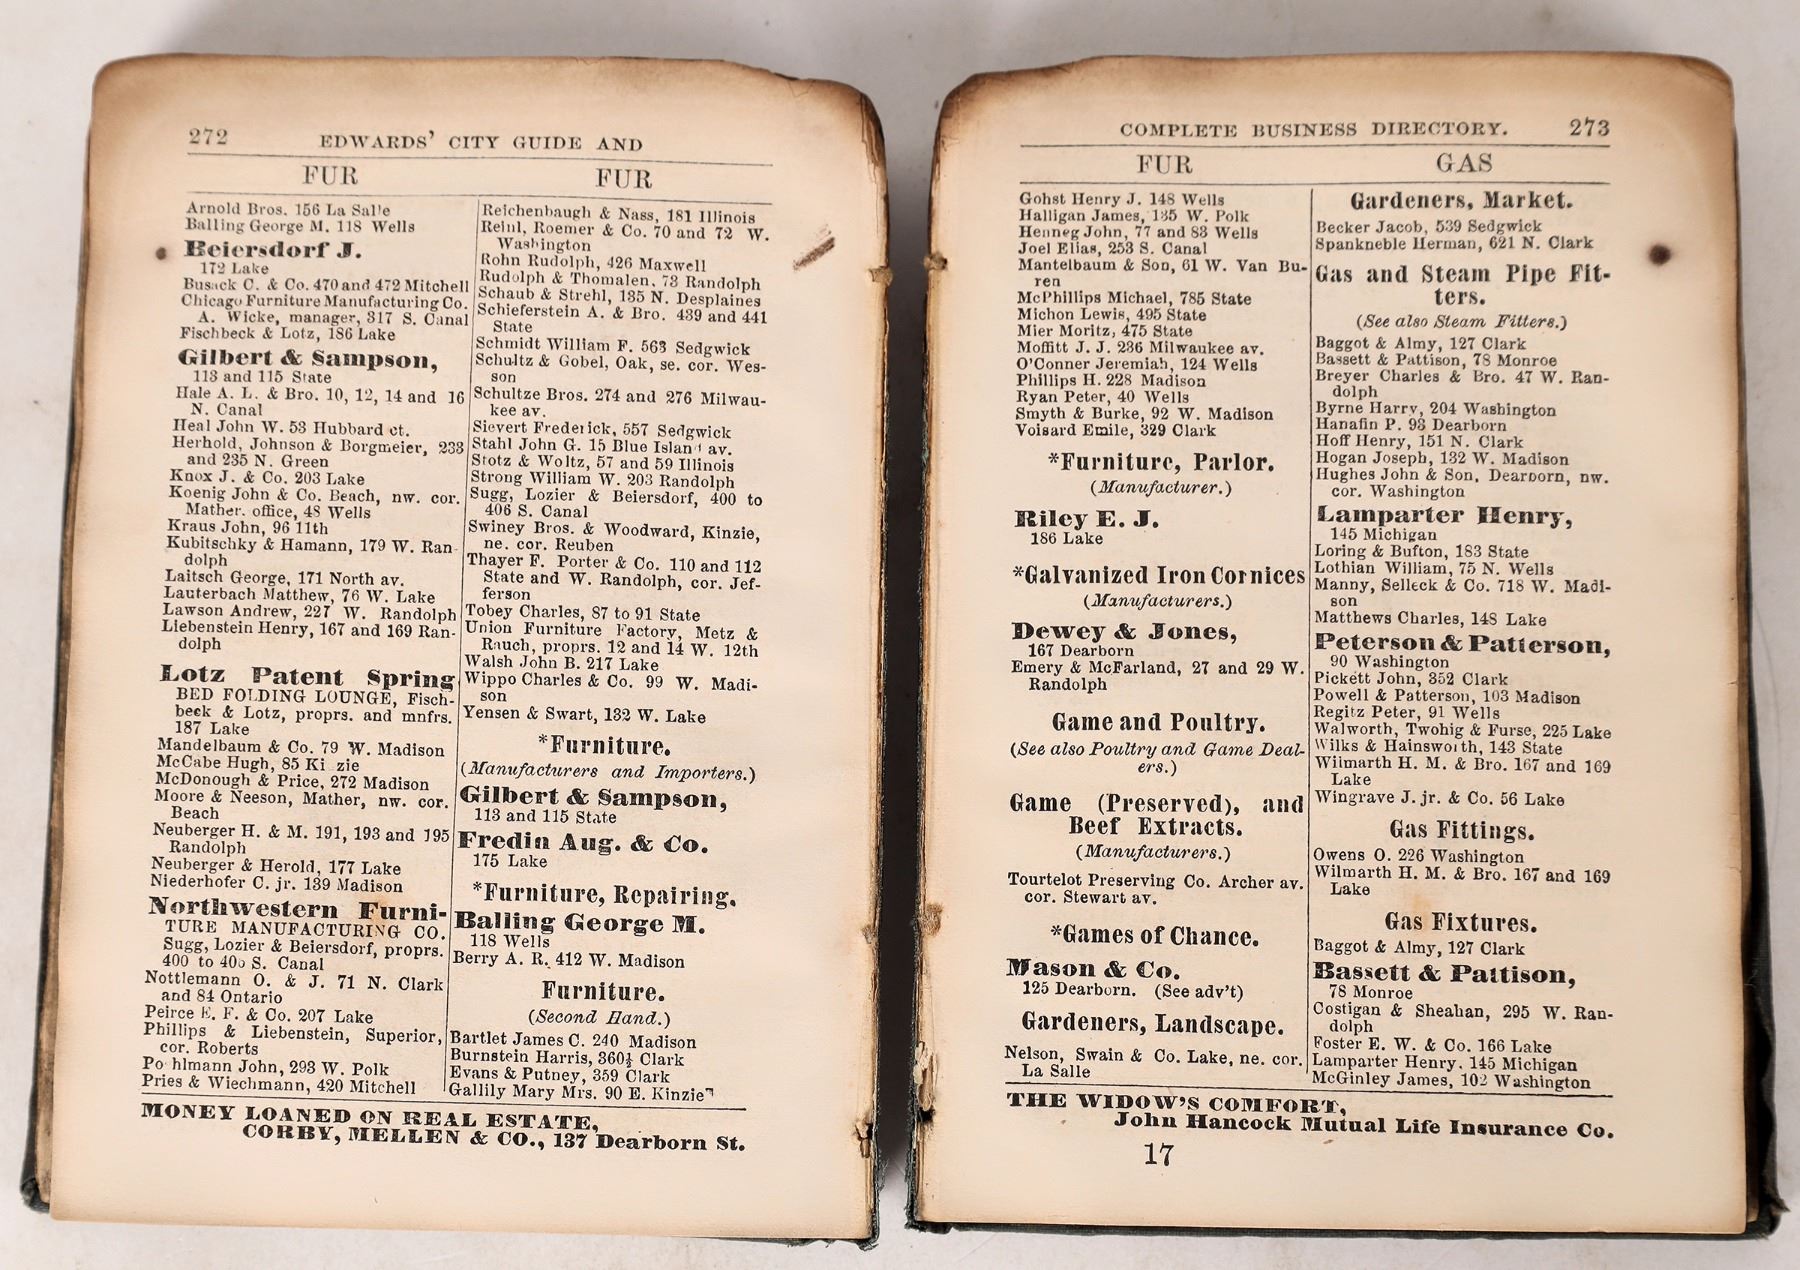 272
EDWARDS' CITY GUIDE AND
FUR
FUR
Arnold Bros. 156 La Salle
Balling George M. 118 Wells
Beiersdorf J.
172 Lake
Busack C. & Co. 470 and 472 Mitchell
Chicago Furniture Manufacturing Co.
A. Wicke, manager, 317 S. Canal
Fischbeck & Lotz, 186 Lake
Gilbert & Sampson,
113 and 115 State
Hale A. L. & Bro. 10, 12, 14 and 16
N. Canal
Heal John W. 53 Hubbard ct.
Herhold, Johnson & Borgmeier, 233
and 235 N. Green
Knox J. & Co. 203 Lake
Koenig John & Co. Beach, nw. cor.
Mather. office, 48 Wells
Kraus John, 96 11th
Kubitschky & Hamann, 179 W. Ran-
dolph
Laitsch George, 171 North av.
Lauterbach Matthew, 76 W. Lake
Lawson Andrew, 227 W. Randolph
Liebenstein Henry, 167 and 169 Ran-
dolph
Lotz Patent Spring
BED FOLDING LOUNGE, Fisch-
beck & Lotz, proprs. and mnfrs.
187 Lake
Mandelbaum & Co. 79 W. Madison
McCabe Hugh, 85 Ki zie
McDonough & Price, 272 Madison
Moore & Neeson, Mather, nw. cor.
Beach
Neuberger H. & M. 191, 193 and 195
Randolph
Neuberger & Herold, 177 Lake
Niederhofer C. jr. 139 Madison
Northwestern Furni-
TURE MANUFACTURING CO.
Sugg, Lozier & Beiersdorf, proprs.
400 to 406 S. Canal
Nottlemann O. & J. 71 N. Clark
and 84 Ontario
Peirce E. F. & Co. 207 Lake
Phillips & Liebenstein, Superior,
cor. Roberts
Po hlmann John, 293 W. Polk
Pries & Wiechmann, 420 Mitchell
Reichenbaugh & Nass, 181 Illinois
Reihl, Roemer & Co. 70 and 72 W.
Washington
Rohn Rudolph, 426 Maxwell
Rudolph & Thomalen, 73 Randolph
Schaub & Strehl, 135 N. Desplaines
Schieferstein A. & Bro. 439 and 441
State
Schmidt William F. 563 Sedgwick
Schultz & Gobel, Oak, se. cor. Wes-
son
Schultze Bros. 274 and 276 Milwau-
kee av.
Sievert Frederick, 557 Sedgwick
Stahl John G. 15 Blue Island av.
Stotz & Woltz, 57 and 59 Illinois
Strong William W. 203 Randolph
Sugg, Lozier & Beiersdorf, 400 to
406 S. Canal
Swiney Bros. & Woodward, Kinzie,
ne. cor. Reuben
Thayer F. Porter & Co. 110 and 112
State and W. Randolph, cor. Jef-
ferson
Tobey Charles, 87 to 91 State
Union Furniture Factory, Metz &
Rauch, proprs. 12 and 14 W. 12th
Walsh John B. 217 Lake
Wippo Charles & Co. 99 W. Madi-
son
Yensen & Swart, 132 W. Lake
*Furniture.
(Manufacturers and Importers.)
Gilbert & Sampson,
113 and 115 State
Fredin Aug. & Co.
175 Lake
*Furniture, Repairing.
Balling George M.
118 Wells
Berry A. R. 412 W. Madison
Furniture.
(Second Hand.)
Bartlet James C. 240 Madison
Burnstein Harris, 360½ Clark
Evans & Putney, 359 Clark
Gallily Mary Mrs. 90 E. Kinzie
MONEY LOANED ON REAL ESTATE,
CORBY, MELLEN & CO., 137 Dearborn St.
COMPLETE BUSINESS DIRECTORY.
273
FUR
GAS
Gohst Henry J. 148 Wells
Halligan James, 135 W. Polk
Henneg John, 77 and 83 Wells
Joel Elias, 253 S. Canal
Mantelbaum & Son, 61 W. Van Bu-
ren
McPhillips Michael, 785 State
Michon Lewis, 495 State
Mier Moritz, 475 State
Moffitt J. J. 236 Milwaukee av.
O'Conner Jeremiah, 124 Wells
Phillips H. 228 Madison
Ryan Peter, 40 Wells
Smyth & Burke, 92 W. Madison
Voisard Emile, 329 Clark
*Furniture, Parlor.
(Manufacturer.)
Riley E. J.
186 Lake
*Galvanized Iron Cornices
(Manufacturers.)
Dewey & Jones,
167 Dearborn
Emery & McFarland, 27 and 29 W.
Randolph
Game and Poultry.
(See also Poultry and Game Deal-
ers.)
Game (Preserved), and
Beef Extracts.
(Manufacturers.)
Tourtelot Preserving Co. Archer av.
cor. Stewart av.
*Games of Chance.
Mason & Co.
125 Dearborn. (See adv't)
Gardeners, Landscape.
Nelson, Swain & Co. Lake, ne. cor.
La Salle
Gardeners, Market.
Becker Jacob, 539 Sedgwick
Spankneble Herman, 621 N. Clark
Gas and Steam Pipe Fit-
ters.
(See also Steam Fitters.)
Baggot & Almy, 127 Clark
Bassett & Pattison, 78 Monroe
Breyer Charles & Bro. 47 W. Ran-
dolph
Byrne Harry, 204 Washington
Hanafin P. 93 Dearborn
Hoff Henry, 151 N. Clark
Hogan Joseph, 132 W. Madison
Hughes John & Son, Dearborn, nw.
cor. Washington
Lamparter Henry,
145 Michigan
Loring & Bufton, 183 State
Lothian William, 75 N. Wells
Manny, Selleck & Co. 718 W. Madi-
son
Matthews Charles, 148 Lake
Peterson & Patterson,
90 Washington
Pickett John, 352 Clark
Powell & Patterson, 103 Madison
Regitz Peter, 91 Wells
Walworth, Twohig & Furse, 225 Lake
Wilks & Hainsworth, 143 State
Wilmarth H. M. & Bro. 167 and 169
Lake
Wingrave J. jr. & Co. 56 Lake
Gas Fittings.
Owens O. 226 Washington
Wilmarth H. M. & Bro. 167 and 169
Lake
Gas Fixtures.
Baggot & Almy, 127 Clark
Bassett & Pattison,
78 Monroe
Costigan & Sheahan, 295 W. Ran-
dolph
Foster E. W. & Co. 166 Lake
Lamparter Henry. 145 Michigan
McGinley James, 102 Washington
THE WIDOW'S COMFORT,
John Hancock Mutual Life Insurance Co.
17